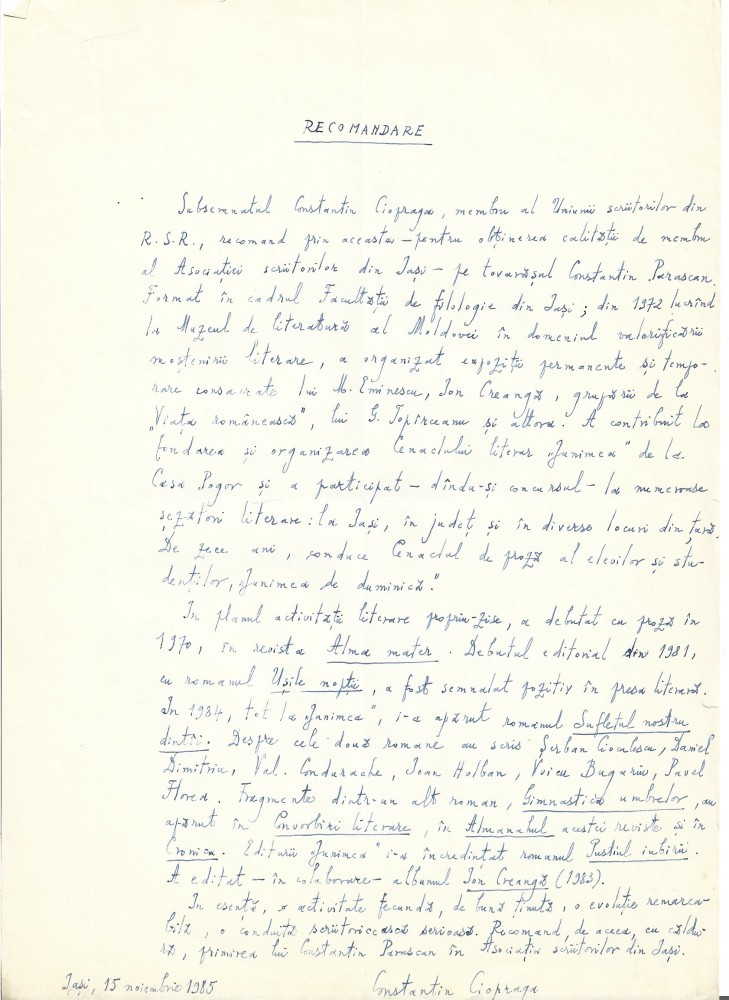 RECOMANDARE
Subsemnatul Constantin Ciopraga, membru al Uniunii scriitorilor din
R.S.R., recomand prin aceasta – pentru obținerea calității de membru
al Asociației scriitorilor din Iași – pe tovarășul Constantin Parascan.
Format în cadrul Facultății de filologie din Iași; din 1972 lucrînd
la Muzeul de literatură al Moldovei în domeniul valorificării
moștenirii literare, a organizat expoziții permanente și tempo-
rare consacrate lui M. Eminescu, Ion Creangă, grupării de la
„Viața românească", lui G. Topîrceanu și altora. A contribuit la
fondarea și organizarea Cenaclului literar „Junimea" de la
Casa Pogor și a participat – dîndu-și concursul – la numeroase
șezători literare: la Iași, în județ și în diverse locuri din țară.
De zece ani, conduce Cenaclul de proză al elevilor și stu-
denților, „Junimea de duminică."
In planul activității literare propriu-zise, a debutat cu proză în
1970, în revista Alma mater. Debutul editorial din 1981,
cu romanul Ușile nopții, a fost semnalat pozitiv în presa literară.
In 1984, tot la „Junimea", i-a apărut romanul Sufletul nostru
dintîi. Despre cele două romane au scris Șerban Cioculescu, Daniel
Dimitriu, Val. Condurache, Ioan Holban, Voicu Bugariu, Pavel
Florea. Fragmente dintr-un alt roman, Gimnastica umbrelor, au
apărut în Convorbiri literare, în Almanahul acestei reviste și în
Cronica. Editurii „Junimea" i-a încredințat romanul Pustiul iubirii.
A editat – în colaborare – albumul Ion Creangă (1983).
In esență, o activitate fecundă, de bună ținută, o evoluție remarca-
bilă, o conduită scriitoricească serioasă. Recomand, de aceea, cu căldu-
ră, primirea lui Constantin Parascan în Asociația scriitorilor din Iași.
Iași, 15 noiembrie 1985 Constantin Ciopraga